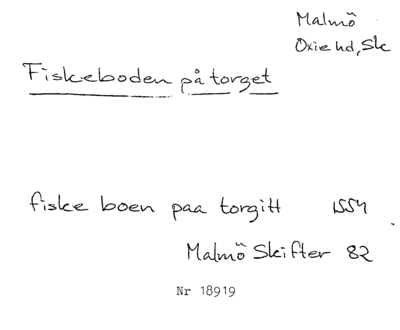 Malmö
Oxie hd, Sk
Fiskeboden på torget
fiske boen paa torgitt 1554
Malmö Skifter 82
Nr 18919